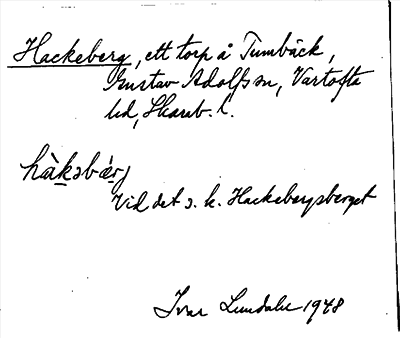 Hackeberg, ett torp å Tumbäck,
Gustav Adolfs sn, Vartofta
hd, Skarab. l.
hàksbærj
Vid det s. k. Hackebergsberget
Ivar Lundahl 1948